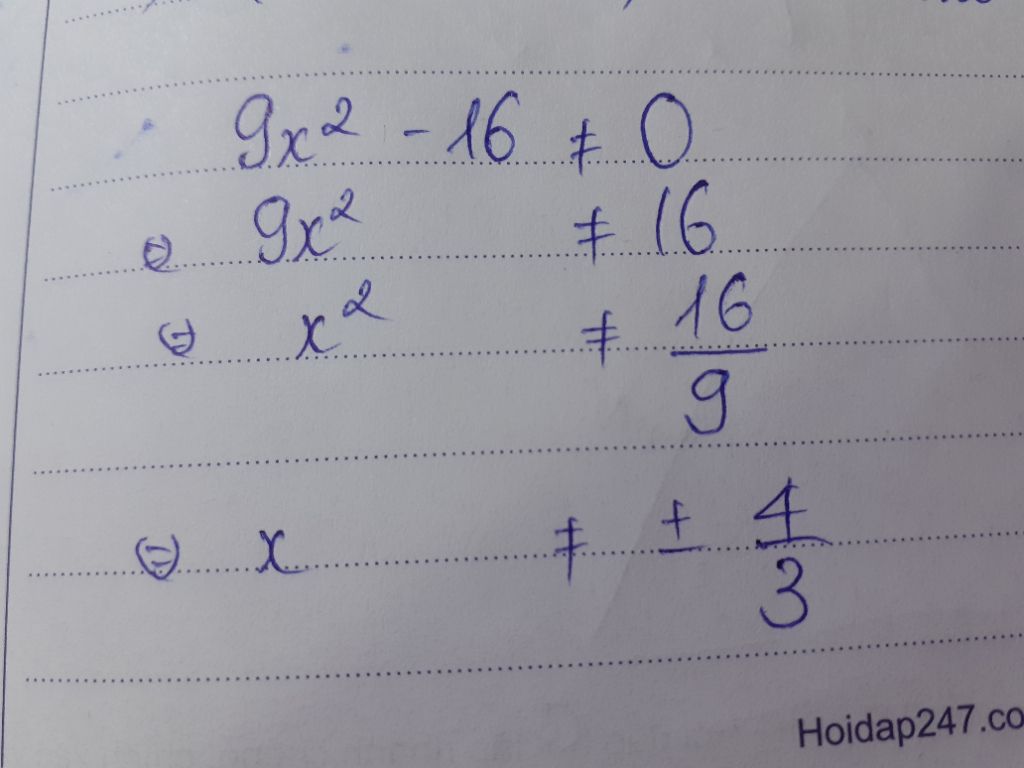 9x² - 16 ≠ 0
⇔ 9x² ≠ 16
⇔ x² ≠ 16/9
⇔ x ≠ ± 4/3
Hoidap247.co